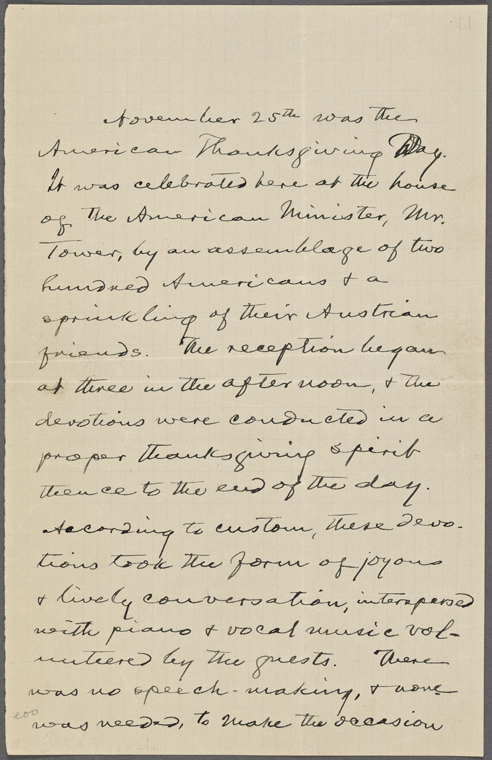 November 25th was the
American Thanksgiving Day.
It was celebrated here at the house
of the American Minister, Mr.
Tower, by an assemblage of two
hundred Americans & a
sprinkling of their Austrian
friends. The reception began
at three in the afternoon, & the
devotions were conducted in a
proper thanksgiving spirit
thence to the end of the day.
According to custom, these devo-
tions took the form of joyous
& lively conversation, interspersed
with piano & vocal music vol-
unteered by the guests. There
was no speech-making, & none
was needed, to make the occasion